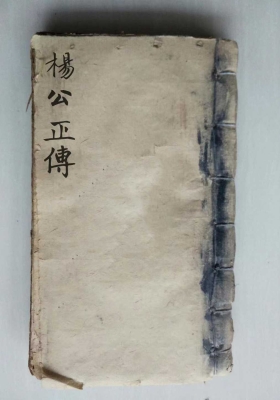 楊公正傳